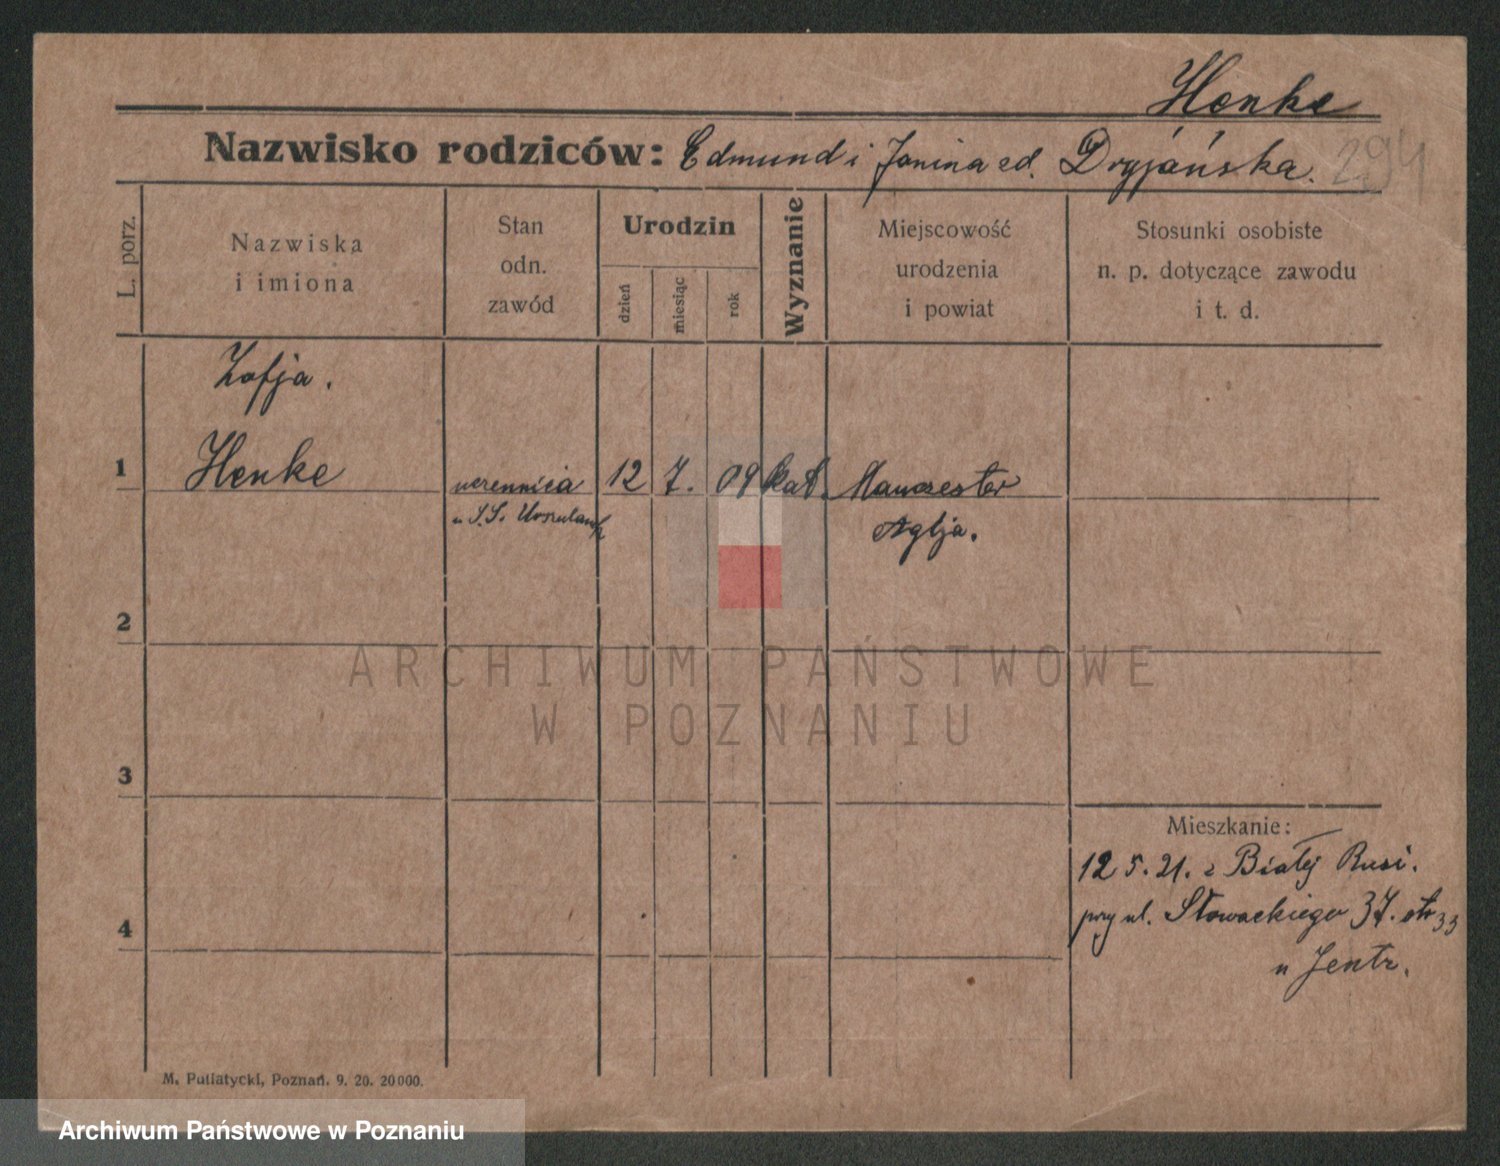 Henke
Nazwisko rodziców: Edmund i Janina zd. Dryjańska.
294
L. porz.
Nazwiska
i imiona
Stan
odn.
zawód
Urodzin
dzień
miesiąc
rok
Wyznanie
Miejscowość
urodzenia
i powiat
Stosunki osobiste
n. p. dotyczące zawodu
i t. d.
Zofja.
1 Henke uczennica 12 7. 09 kat. Manczester
u S.S. Urszulank
Aglja.
2
ARCHIWUM PAŃSTWOWE
W POZNANIU
3
Mieszkanie:
12 5. 21. z Białej Rusi.
przy ul. Słowackiego 37. otr 33
u Jentz.
4
M. Putiatycki, Poznań. 9. 20. 20000.
Archiwum Państwowe w Poznaniu